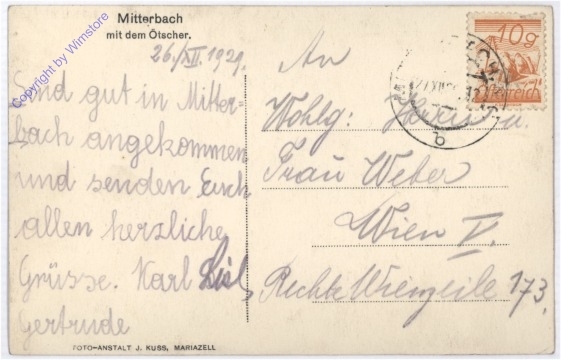 Mitterbach
mit dem Ötscher.
Copyright by Wimstore
26./XII. 1929.
Sind gut in Mitter=
bach angekommen
und senden Euch
allen herzliche
Grüsse. Karl Lisl,
Gertrude
An
Wohlg: Herrn u.
Frau Weber
Wien V.
Rechte Wienzeile 173.
10g
Österreich
b
FOTO-ANSTALT J. KUSS, MARIAZELL